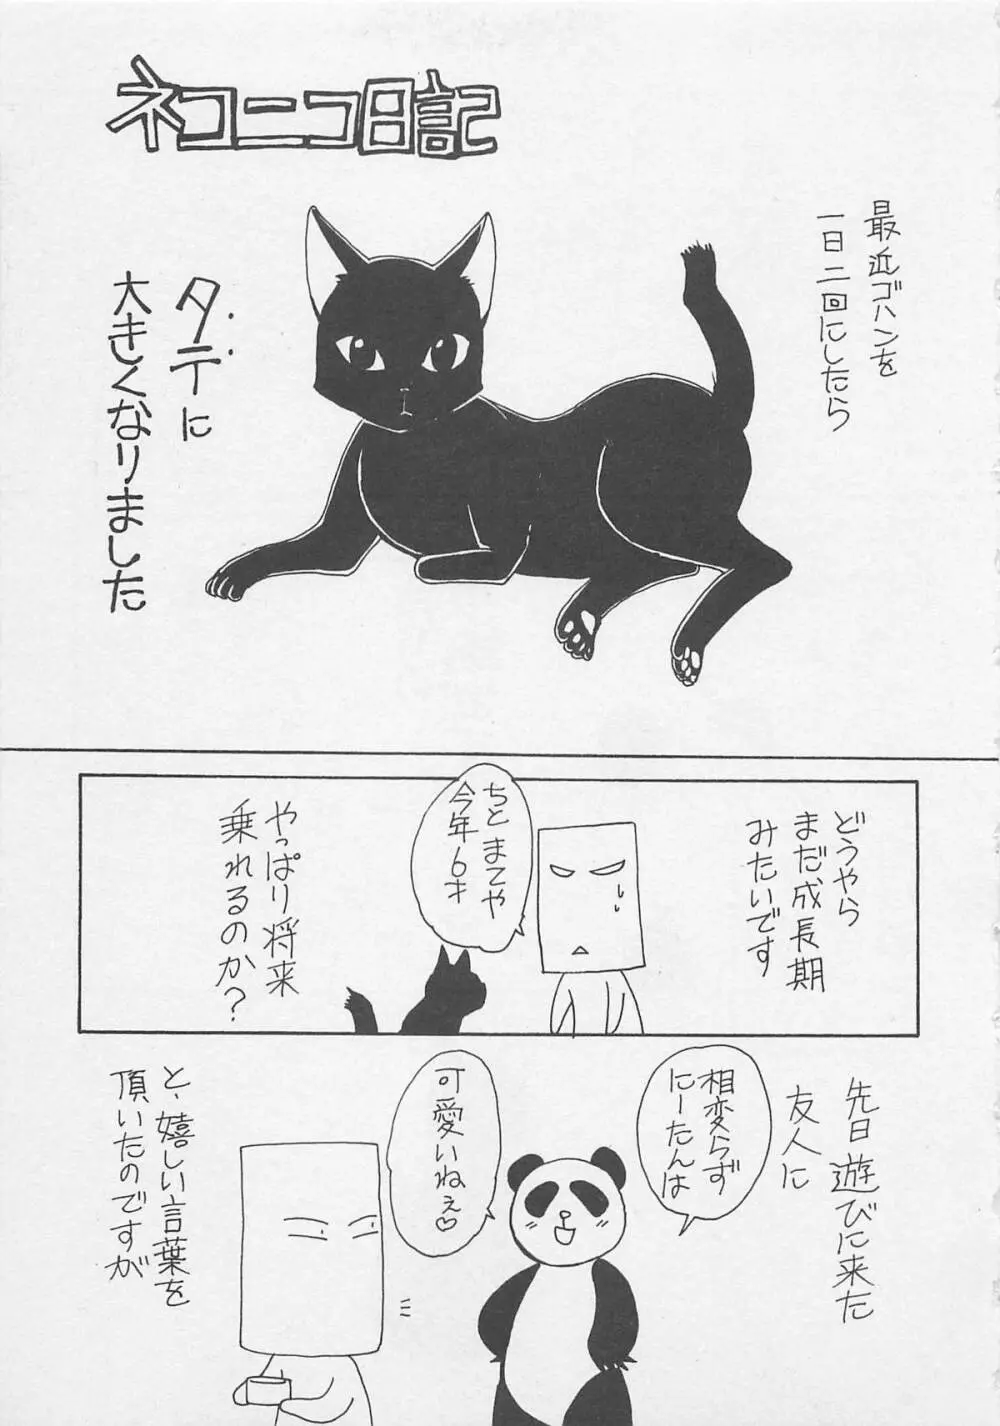 ネコニコ日記
最近ゴハンを
一日二回にしたら
タテに
大きくなりました
どうやら
まだ成長期
みたいです
ちとまてや
今年6才
やっぱり将来
乗れるのか？
先日遊びに来た
友人に
相変らず
にーたんは
可愛いねぇ♡
と、嬉しい言葉を
頂いたのですが